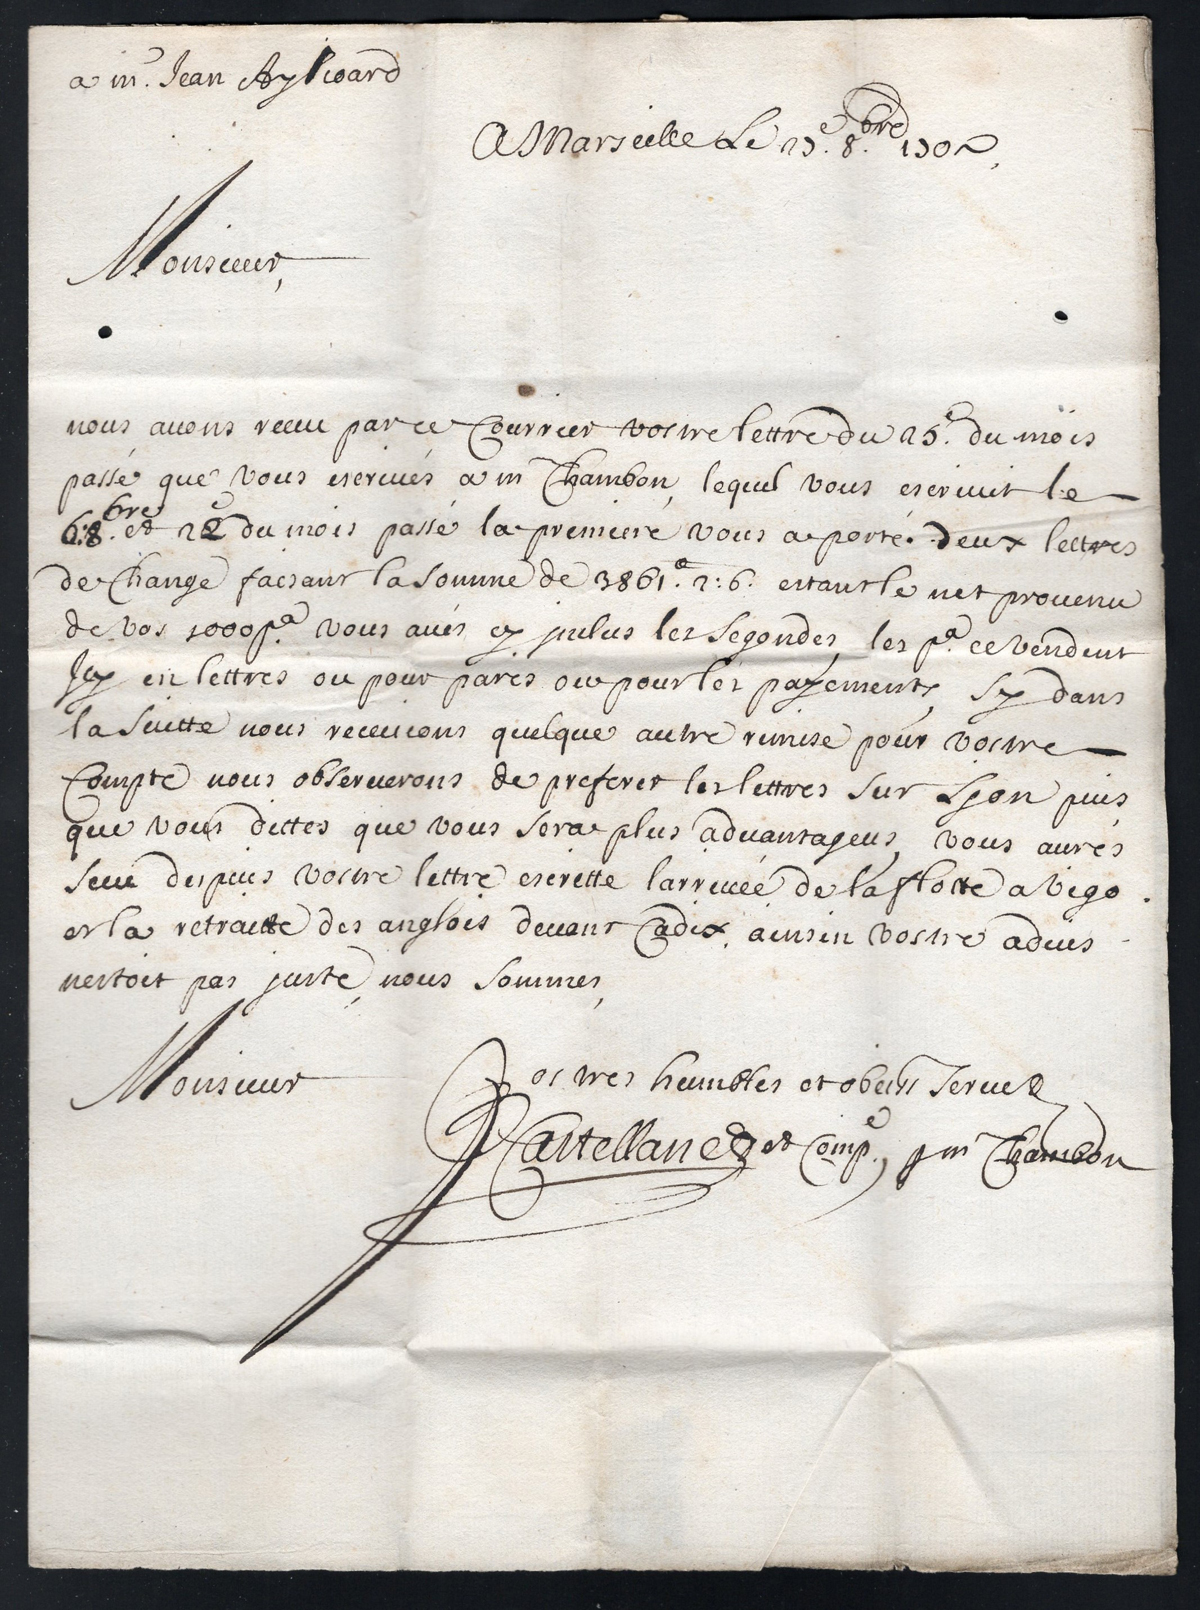 a mr. Jean Aylward
A Marseille Le 27e. 8.bre 1702,
Monsieur,
nous auons receu par ce Courrier vostre lettre du 25e. du mois
passé que vous escriués a mr Chambon, lequel vous escriuit le
6:8.bre et 22e du mois passé la premiere vous a porté deux lettres
de Change faisant la somme de 3861.a 2:6. estant le net prouenu
de vos 1000p.a vous aués cy jnclus les segondes, les p.a ce vendent
Jcy en lettres ou pour pares ou pour les payements, sy dans
la suitte nous receuions quelque autre remise pour vostre
Compte nous obseruerons de preferer les lettres sur Lyon puis
que vous dittes que vous sera plus aduantageus, vous aurés
seu despuis vostre lettre escritte l'arriuée de la flotte a Vigo .
et la retraitte des anglois deuant Cadix, ainsin vostre aduis
nestoit pas juste, nous sommes,
Monsieur
Vos tres humbles et obeiss seruers
Castellane et Compe., p mr Chambon